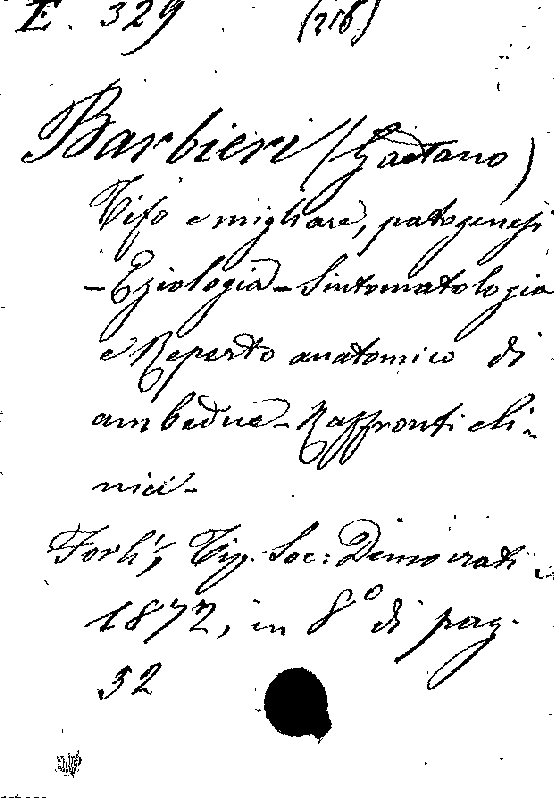 E. 329 (216)
Barbieri (Gaetano)
Tifo e migliare, patogenesi
- Eziologia - Sintomatologia
e Reperto anatomico di
ambedue - Raffronti cli-
nici -
Forlì, Tip. Soc: Democrati
1872, in 8° di pag.
32